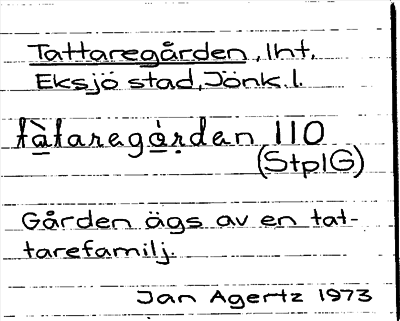 Tattaregården, lht,
Eksjö stad, Jönk. l.
tàtaregárdan 110
(StplG)
Gården ägs av en tat-
tarefamilj.
Jan Agertz 1973